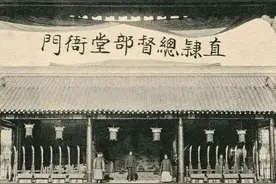 直隷總督部堂衙門